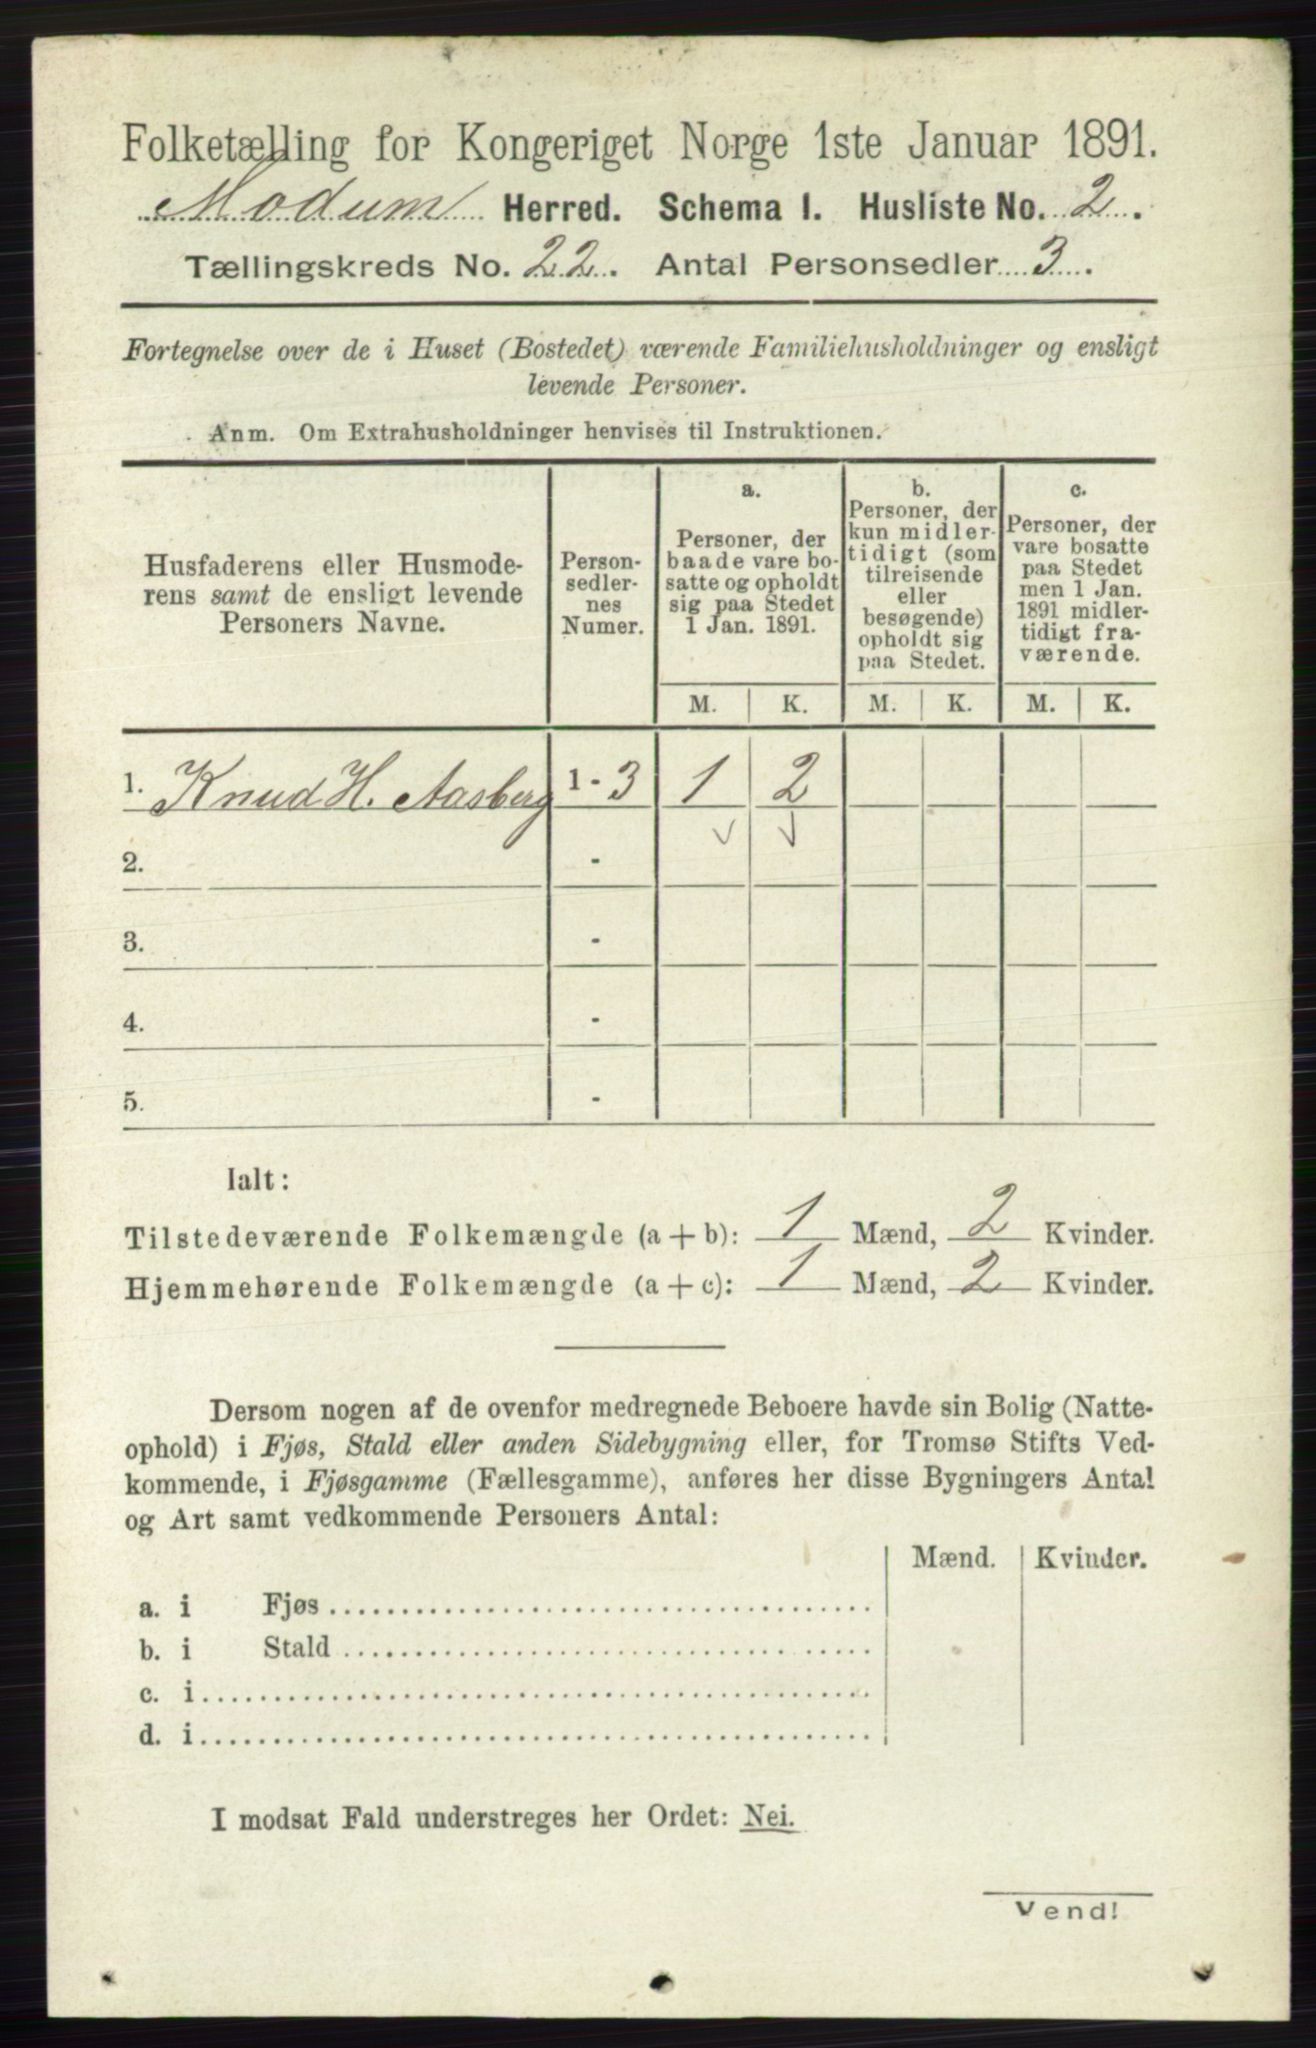 Folketælling for Kongeriget Norge 1ste Januar 1891.
Modum Herred. Schema I. Husliste No. 2.
Tællingskreds No. 22. Antal Personsedler 3.
Fortegnelse over de i Huset (Bostedet) værende Familiehusholdninger og ensligt
levende Personer.
Anm. Om Extrahusholdninger henvises til Instruktionen.
Husfaderens eller Husmode-
rens samt de ensligt levende
Personers Navne.
Person-
sedler-
nes
Numer.
a.
Personer, der
baade vare bo-
satte og opholdt
sig paa Stedet
1 Jan. 1891.
b.
Personer, der
kun midler-
tidigt (som
tilreisende
eller
besøgende)
opholdt sig
paa Stedet.
c.
Personer, der
vare bosatte
paa Stedet
men 1 Jan.
1891 midler-
tidigt fra-
værende.
M. K. M. K. M. K.
1. Knud H. Aasberg 1 - 3 1 2
2. -
3. -
4. -
5. -
Ialt:
Tilstedeværende Folkemængde (a + b): 1 Mænd, 2 Kvinder.
Hjemmehørende Folkemængde (a + c): 1 Mænd, 2 Kvinder.
Dersom nogen af de ovenfor medregnede Beboere havde sin Bolig (Natte-
ophold) i Fjøs, Stald eller anden Sidebygning eller, for Tromsø Stifts Ved-
kommende, i Fjøsgamme (Fællesgamme), anføres her disse Bygningers Antal
og Art samt vedkommende Personers Antal:
Mænd. Kvinder.
a. i Fjøs
b. i Stald
c. i
d. i
I modsat Fald understreges her Ordet: Nei.
Vend!